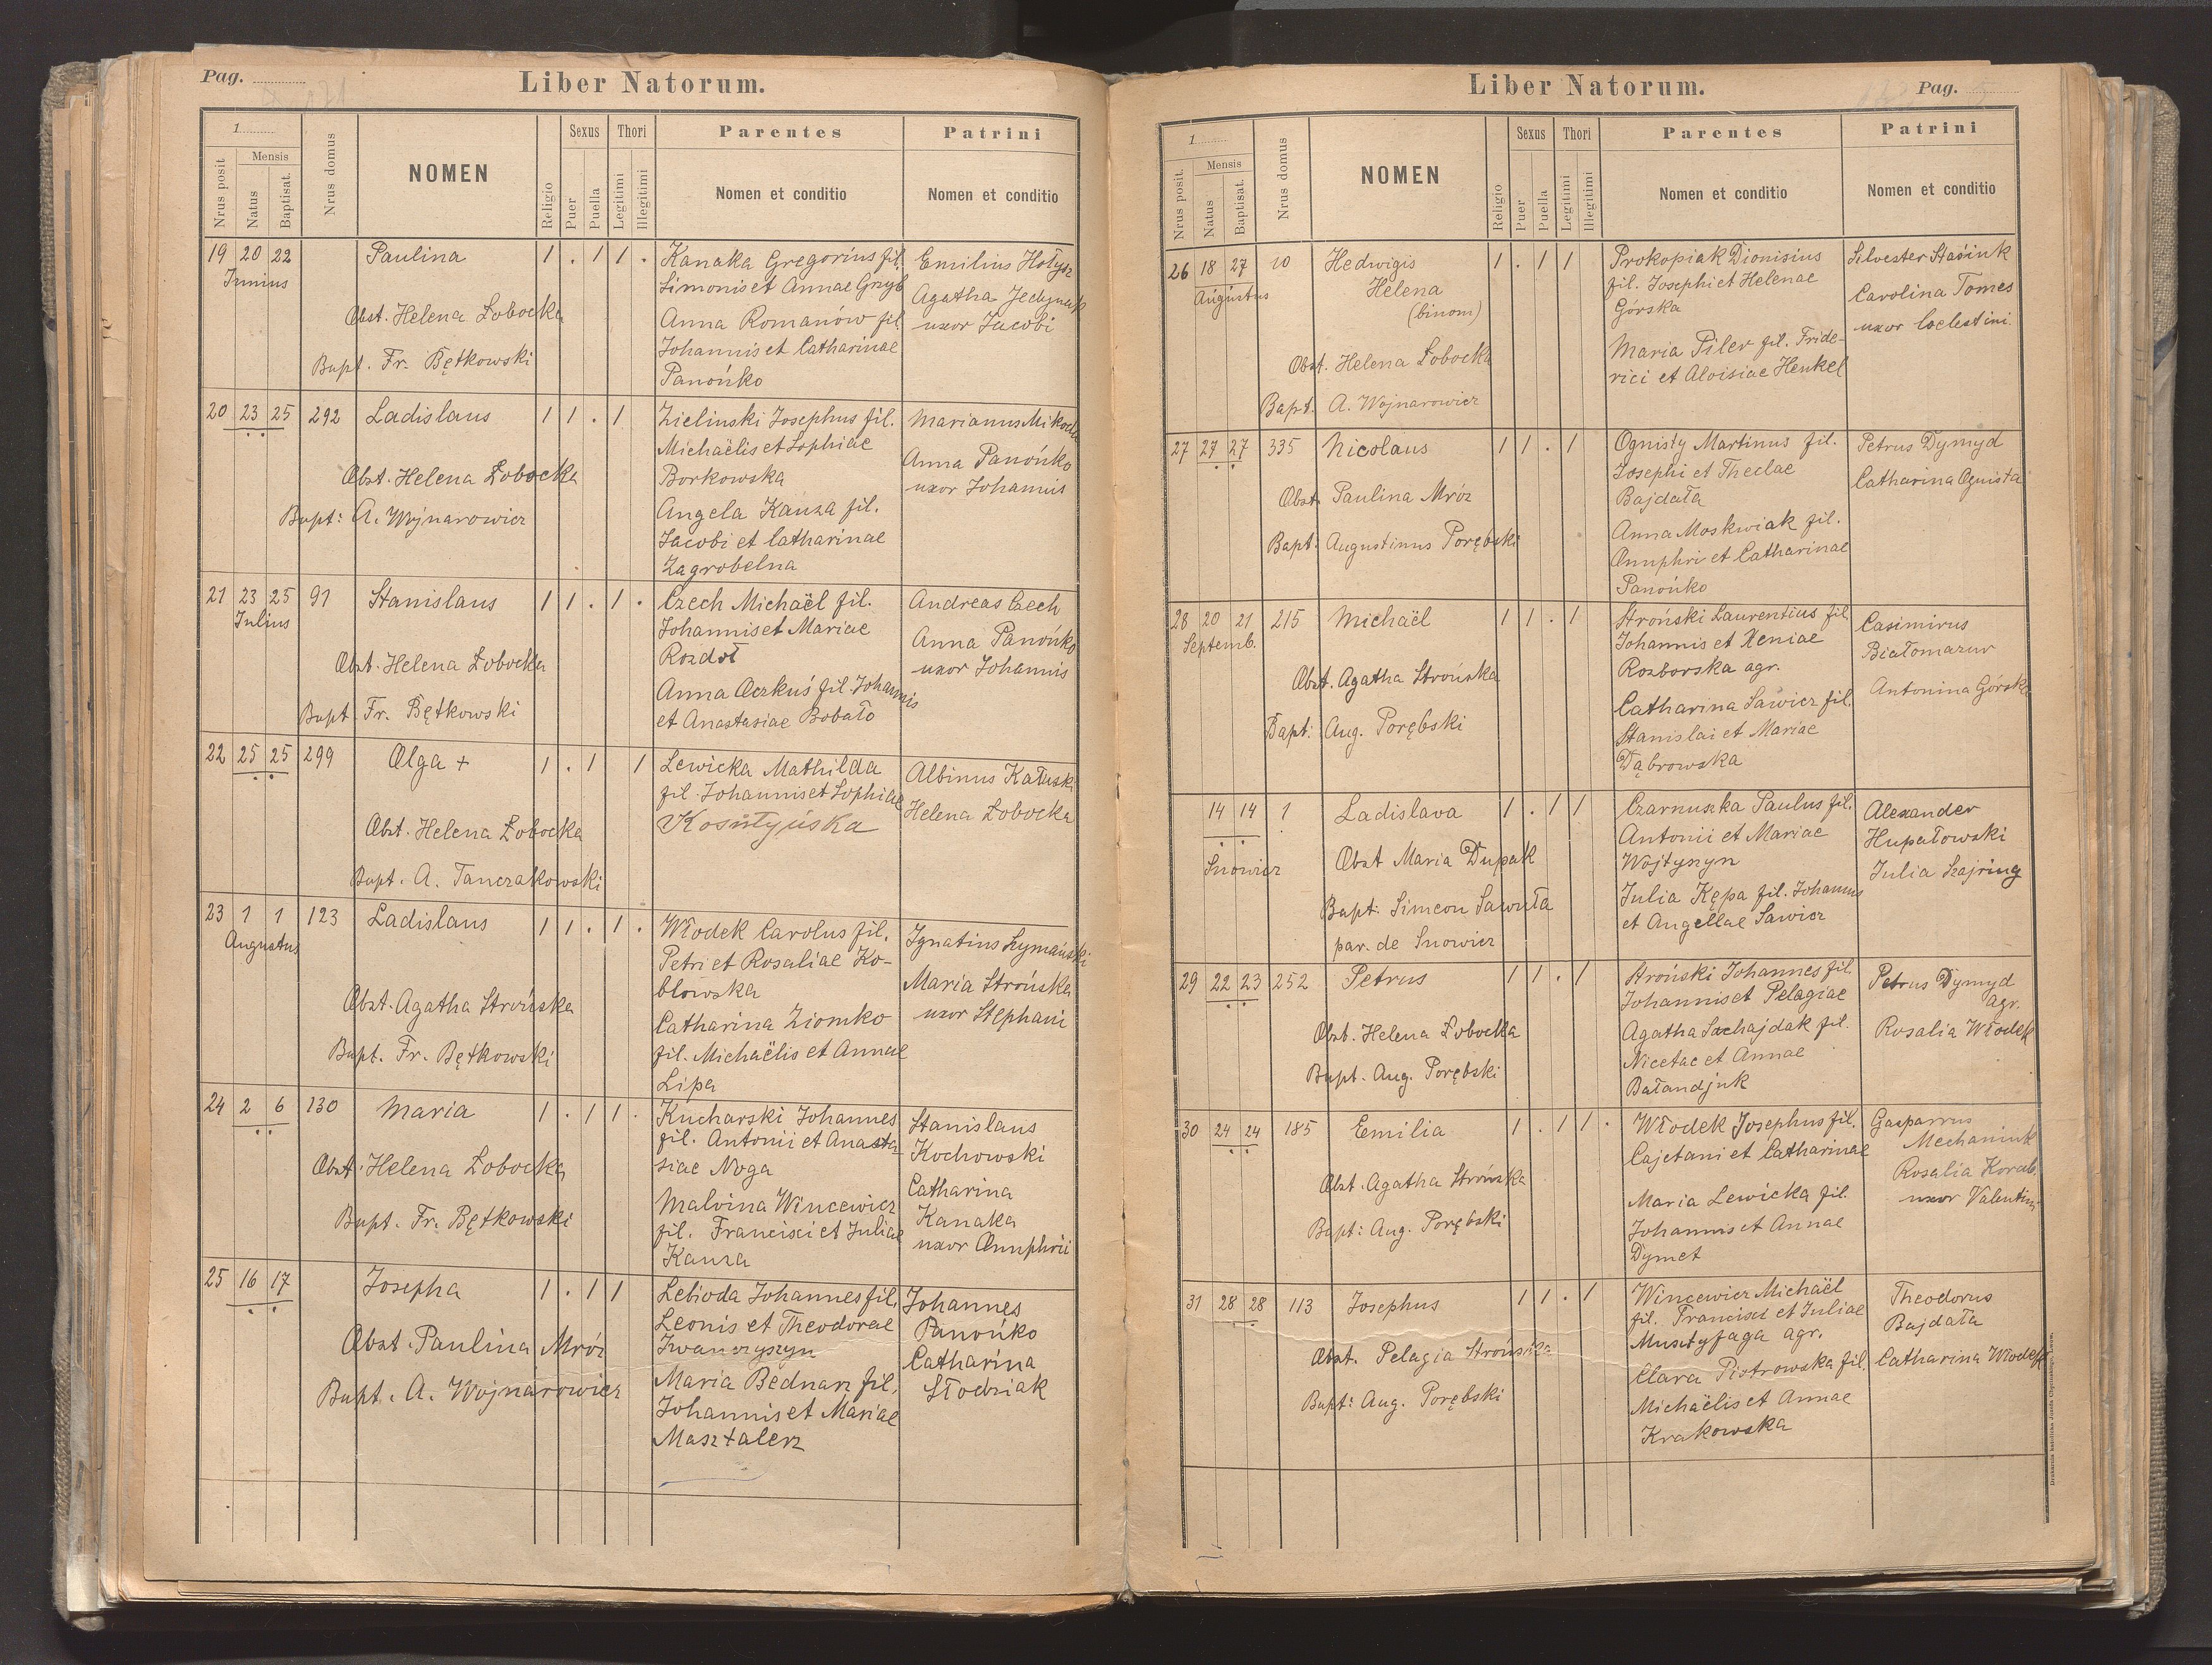 Pag.
Liber Natorum.
1
Nrus posit
Mensis
Natus
Baptisat.
Nrus domus
NOMEN
Religio
Sexus
Puer
Puella
Thori
Legitimi
Illegitimi
Parentes
Nomen et conditio
Patrini
Nomen et conditio
19 20 22 Paulina 1 . 1 1 .
Junius
Obst. Helena Łobocka
Bapt. Fr. Bętkowski
Kanaka Gregorius fil.
Simonis et Annae Gryb
Anna Romanów fil.
Johannis et Catharinae
Panońko
Emilius Hołysz
Agatha
uxor Jacobi
20 23 25 292 Ladislaus 1 1 . 1
Obst. Helena Łobocka
Bapt: A. Wojnarowicz
Zielinski Josephus fil.
Michaëlis et Sophiae
Borkowska
Angela Kauza fil.
Jacobi et Catharinae
Zagrobelna
Marianus
Anna Panońko
uxor Johannis
21 23 25 91 Stanislaus 1 1 . 1 .
Julius
Obst. Helena Łobocka
Bapt. Fr. Bętkowski
Czech Michaël fil.
Johannis et Mariae
Rozdoł
Anna Oczkuś fil. Johannis
et Anastasiae Bobało
Andreas Czech
Anna Panońko
uxor Johannis
22 25 25 299 Olga + 1 . 1 1
Obst. Helena Łobocka
Bapt. A. Tanczakowski
Lewicka Mathilda
fil. Johannis et Sophiae
Albinus Kałuski
Helena Łobocka
23 1 1 123 Ladislaus 1 1 . 1 .
Augustus
Obst. Agatha Strońska
Bapt. Fr. Bętkowski
Włodek Carolus fil.
Petri et Rosaliae Ko-
blowska
Catharina Ziomko
fil. Michaëlis et Annae
Lipa
Ignatius Szymański
Maria Strońska
uxor Stephani
24 2 6 130 Maria 1 . 1 1 .
Obst. Helena Łobocka
Bapt. Fr. Bętkowski
Kucharski Johannes
fil. Antonii et Anasta-
siae Noga
Malvina Wincewicz
fil. Francisci et Juliae
Kauza
Stanislaus
Kochowski
Catharina
Kanaka
uxor Onuphrii
25 16 17 Josepha 1 . 1 1
Obst. Paulina Mróz
Bapt. A. Wojnarowicz
Lebioda Johannes fil.
Leonis et Theodorae
Iwanczyszyn
Maria Bednarz fil.
Johannis et Mariae
Masztalerz
Johannes
Panońko
Catharina
Słobiak
Liber Natorum.
Pag.
1
Nrus posit.
Mensis
Natus
Baptisat.
Nrus domus
NOMEN
Religio
Sexus
Puer
Puella
Thori
Legitimi
Illegitimi
Parentes
Nomen et conditio
Patrini
Nomen et conditio
26 18 27 10 Hedwigis 1 . 1 1
Augustus
Helena
(binom)
Obst. Helena Łobocka
Bapt. A. Wojnarowicz
Prokopiak Dionisius
fil. Josephi et Helenae
Górska
Maria Piler fil. Fride-
rici et Aloisiae Henkel
Silvester Stasiuk
Carolina Tomes
uxor Coelestini.
27 27 27 335 Nicolaus 1 1 . 1
Obst. Paulina Mróz
Bapt: Augustinus Porębski
Ognisty Martinus fil.
Josephi et Theclae
Bajdała
Anna Moskwiak fil.
Onuphri et Catharinae
Panońko
Petrus Dymyd
Catharina Ognista
28 20 21 215 Michaël 1 1 . 1
Septemb.
Obst. Agatha Strońska
Bapt: Aug. Porębski
Stroński Laurentius fil.
Johannis et Xeniae
Rozborska agr.
Catharina Sawicz fil.
Stanislai et Mariae
Dąbrowska
Casimirus
Białomazur
Antonina Górska
14 14 1 Ladislava 1 . 1 1
Snowicz
Obst Maria Dupak
Bapt. Simeon Sawuła
par. de Snowicz
Czarnuszka Paulus fil.
Antonii et Mariae
Wojtyszyn
Julia Kępa fil. Johannis
et Angellae Sawicz
Alexander
Hupałowski
Julia Szajring
29 22 23 252 Petrus 1 1 . 1
Obst. Helena Łobocka
Bapt. Aug. Porębski
Stroński Johannes fil.
Johannis et Pelagiae
Agatha Szchajdak fil.
Nicetae et Annae
Bałandjuk
Petrus Dymyd
agr.
Rosalia Włodek
30 24 24 185 Emilia 1 . 1 1 .
Obst. Agatha Strońska
Bapt: Aug. Porębski
Włodek Josephus fil.
Cajetani et Catharinae
Maria Lewicka fil.
Johannis et Annae
Dymet
Gasparrus
Mechaniuk
Rosalia Korab
uxor Valentini
31 28 28 113 Josephus 1 1 . 1
Obst. Pelagia Strońska
Bapt: Aug. Porębski
Wincewicz Michaël
fil. Francisci et Juliae
Musztyfaga agr.
Clara Piotrowska fil.
Michaëlis et Annae
Krakowska
Theodorus
Bajdała
Catharina Włodek